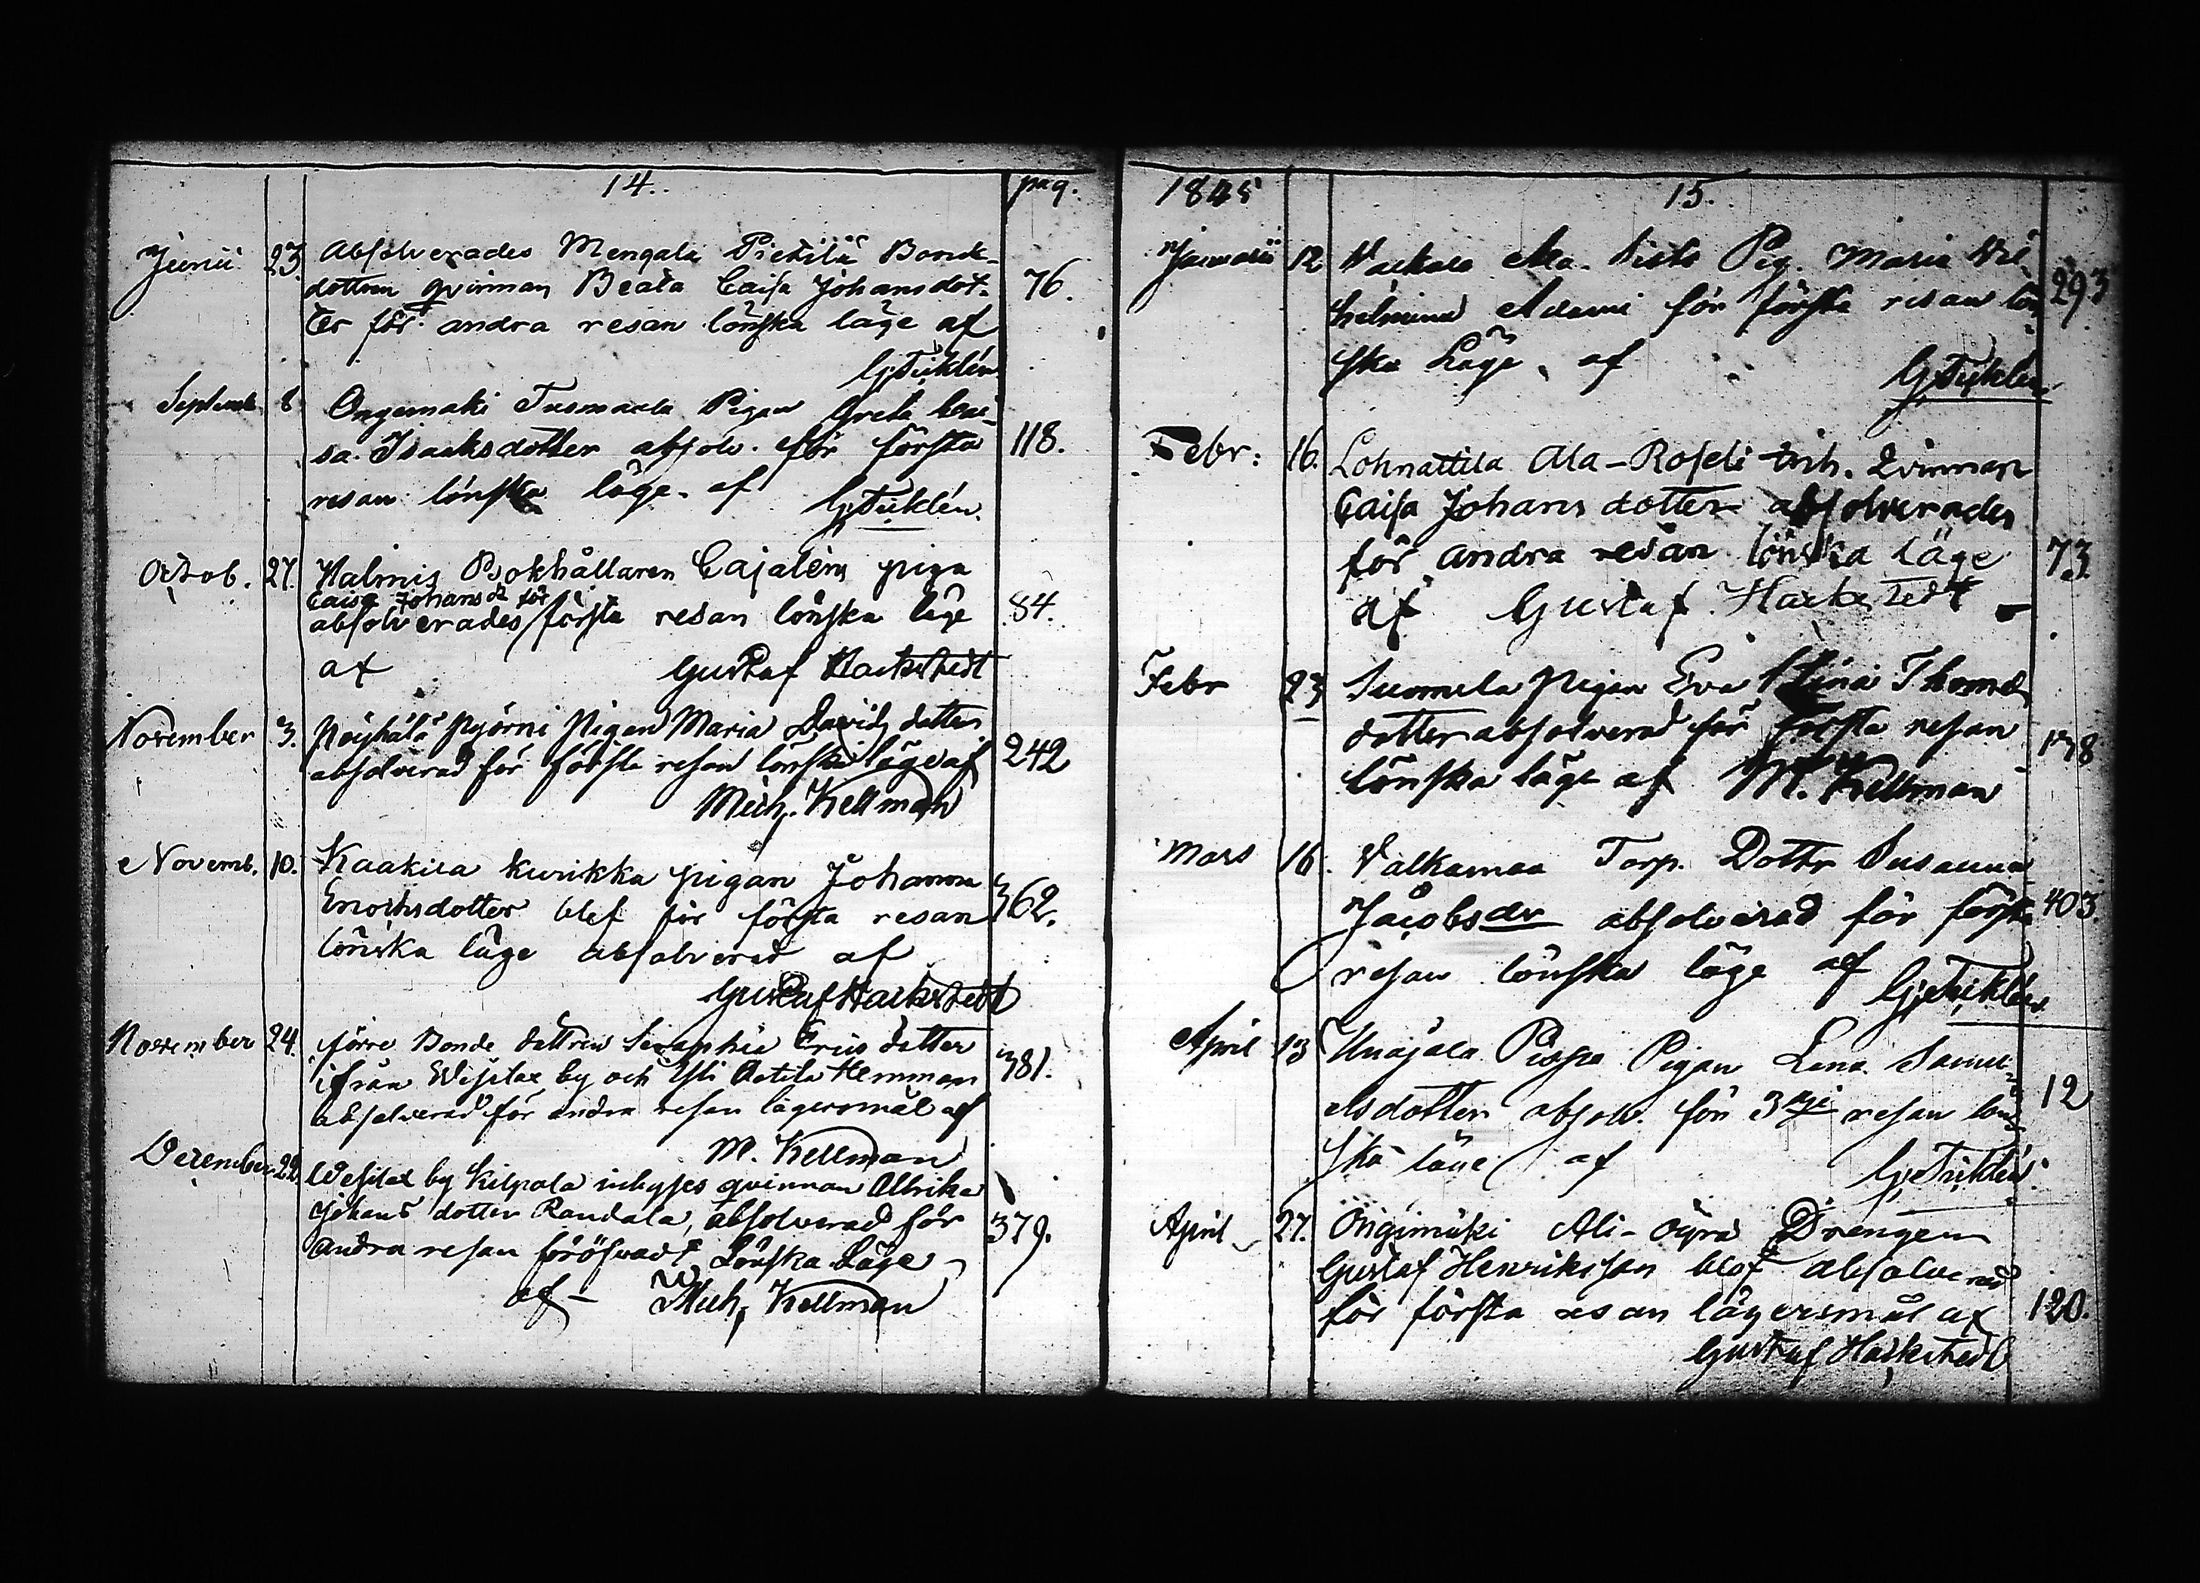 14. pag.
Junii 23. Absolverades Mengala Pietilä Bond-
dottren qvinnan Beata Caisa Johansdot- 76.
ter för andra resan lönska läge af
G. Ticklén
Septemb. 8 Ongemaki Tusmaela Pigan Greta Cai-
sa Isaksdotter absolv. för första 118.
resan lönska läge af
G. Ticklén.
Octob. 27. Halmis Bokhållaren Cajaléns piga
Caisa Johansd. för
absolverades första resan lönska läge 84.
af Gustaf Hackstedt
November 3. Pöyhälä Pyörni Pigan Maria Davids dotter
absolverad för första resan lönska läge af 242
Mich. Kellman
Novemb. 10. Kaakila Kurikka pigan Johanna
Enochsdotter blef för första resan 362.
lönska läge absolverad af
Gustaf Hackstedt
November 24. förre Bonde dottren Seraphia Erics dotter
ifrån Wesilax by och Yli Aetilä Hemman 381.
absolverad för andra resan lägersmål af
M. Kellman
December 22. Wesilax by Kilpala inhyses qvinnan Allrika
Johans dotter Randala, absolverad för 379.
andra resan föröfvadt Lönska Läge
af – Mich. Kellman
1845 15.
Januarii 12 Valkala Ala-Sisto Pig. Maria Vil-
helmina Adami för första resan lön- 293
ska Läge af
G. Ticklén
Febr: 16. Lohnattila Ala-Roseli inh. Qvinnan
Caisa Johans dotter absolverades
för andra resan lönska läge 73.
af Gustaf Hackstedt
Febr 23 Suomela pigan Eva Stina Thomæ
dotter absolverad för första resan 178
lönska läge af M. Kellman
Mars 16. Valkamaa Torp. Dottr Susanna
Jacobsdr absolverad för första 403
resan lönska läge af
G. Ticklén
April 13 Unajala Pispa Pigan Lena Samu-
elsdotter absolv. för 3dje resan lön- 12
ska läge af
G. Ticklén.
April 27. Ongimäki Ali-Öyrä Drengen
Gustaf Henriksson blef absolverad
för första resan lägersmål af 120.
Gustaf Hackstedt